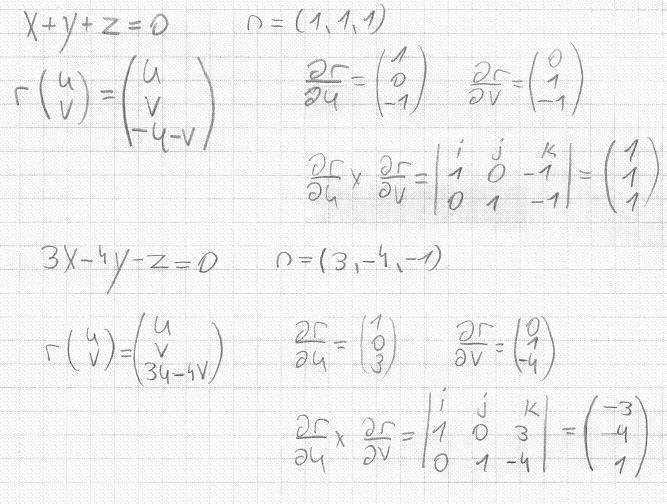 x+y+z=0 n=(1,1,1)
r(u v)=(u v -u-v) ∂r/∂u=(1 0 -1) ∂r/∂v=(0 1 -1)
∂r/∂u x ∂r/∂v=|i j k 1 0 -1 0 1 -1|=(1 1 1)
3x-4y-z=0 n=(3,-4,-1)
r(u v)=(u v 3u-4v) ∂r/∂u=(1 0 3) ∂r/∂v=(0 1 -4)
∂r/∂u x ∂r/∂v=|i j k 1 0 3 0 1 -4|=(-3 -4 1)